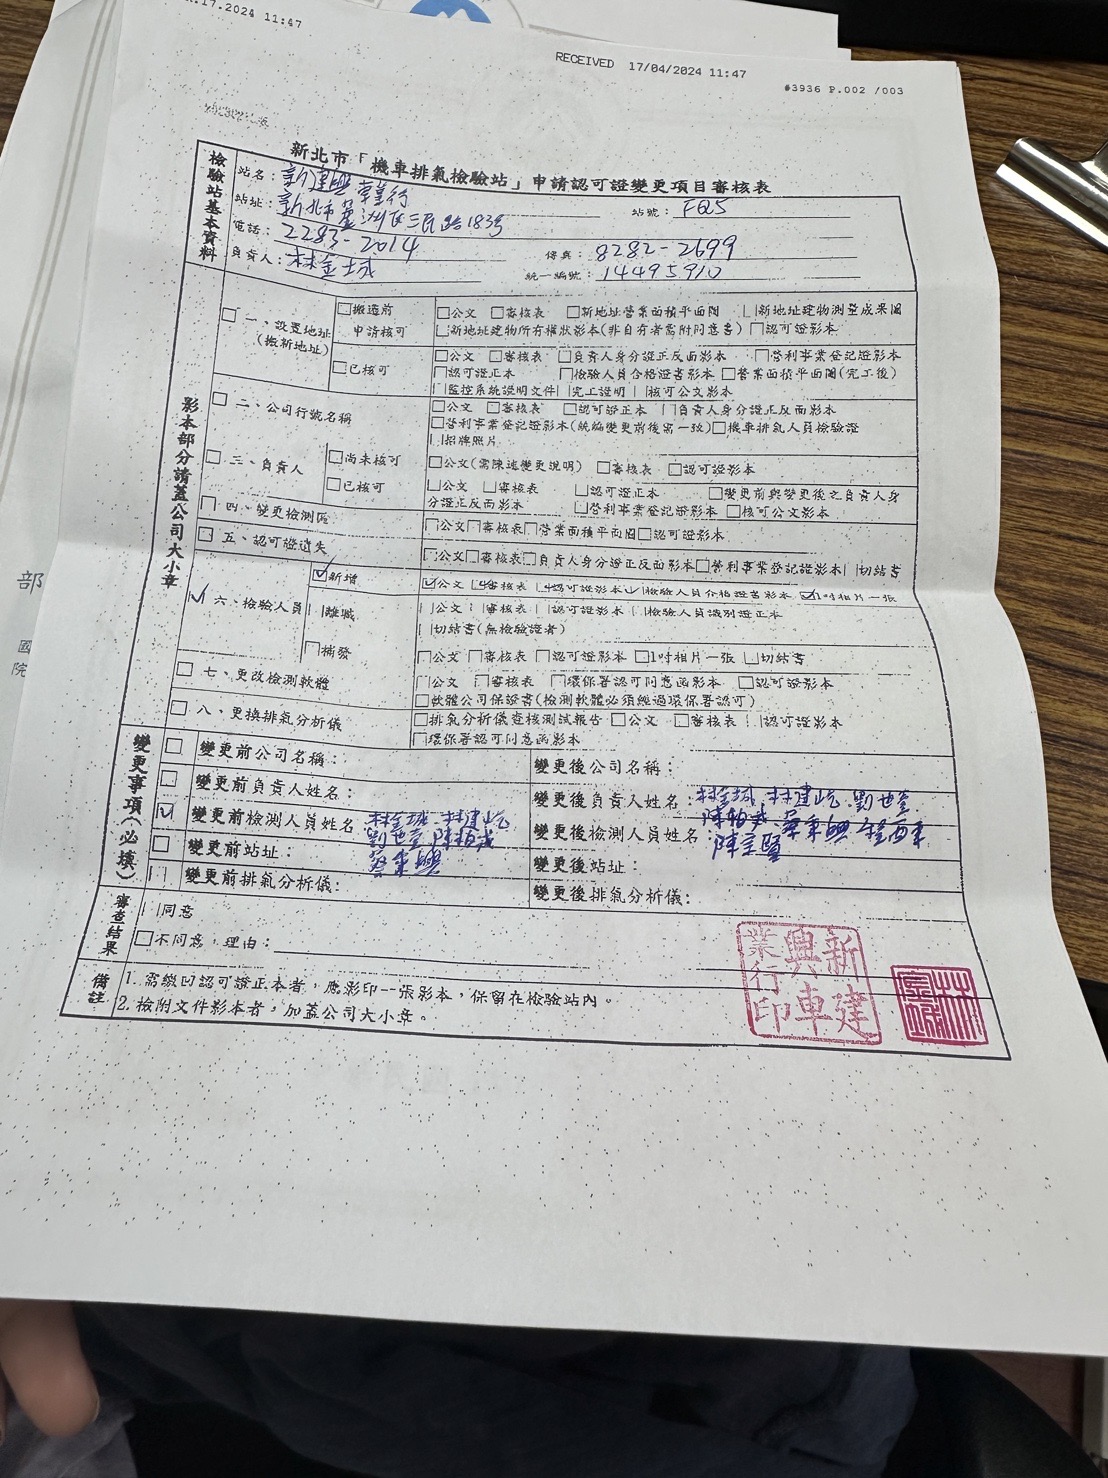 .17.2024 11:47
RECEIVED 17/04/2024 11:47
#3936 P.002 /003
新北市「機車排氣檢驗站」申請認可證變更項目審核表
檢驗站基本資料
站名：新建興車業行
站號：FQ5
站址：新北市蘆洲區三民路183號
電話：2283-2014
傳真：8282-2699
負責人：林金城
統一編號：14495910
影本部分請蓋公司大小章
□一、設置地址(搬新地址)
□搬遷前申請核可
□公文 □審核表 □新地址營業面積平面圖 □新地址建物測量成果圖
□新地址建物所有權狀影本(非自有者需附同意書) □認可證影本
□已核可
□公文 □審核表 □負責人身分證正反面影本 □營利事業登記證影本
□認可證正本 □檢驗人員合格證書影本 □營業面積平面圖(完工後)
□監控系統證明文件 □完工證明 □核可公文影本
□二、公司行號名稱
□公文 □審核表 □認可證正本 □負責人身分證正反面影本
□營利事業登記證影本(統編變更前後需一致) □機車排氣人員檢驗證
□招牌照片
□三、負責人
□尚未核可
□公文(需陳述變更說明) □審核表 □認可證影本
□已核可
□公文 □審核表 □認可證正本 □變更前與變更後之負責人身
分證正反面影本 □營利事業登記證影本 □核可公文影本
□四、變更檢測區
□公文 □審核表 □營業面積平面圖 □認可證影本
□五、認可證遺失
□公文 □審核表 □負責人身分證正反面影本 □營利事業登記證影本 □切結書
☑六、檢驗人員
☑新增
☑公文 ☑審核表 ☑認可證影本 ☑檢驗人員合格證書影本 ☑1吋相片一張
□離職
□公文 □審核表 □認可證影本 □檢驗人員識別證正本
□切結書(無檢驗證者)
□補發
□公文 □審核表 □認可證影本 □1吋相片一張 □切結書
□七、更改檢測軟體
□公文 □審核表 □環保署認可同意函影本 □認可證影本
□軟體公司保證書(檢測軟體必須經過環保署認可)
□八、更換排氣分析儀
□排氣分析儀查核測試報告 □公文 □審核表 □認可證影本
□環保署認可同意函影本
變更事項(必填)
□變更前公司名稱：
變更後公司名稱：
□變更前負責人姓名：
變更後負責人姓名：
☑變更前檢測人員姓名：林金城
變更後檢測人員姓名：林金城
□變更前站址：
變更後站址：
□變更前排氣分析儀：
變更後排氣分析儀：
審查結果
□同意
□不同意，理由：
備註
1. 需繳回認可證正本者，應影印一張影本，保留在檢驗站內。
2. 檢附文件影本者，加蓋公司大小章。
新建興車業行印
林金城
部
國
院